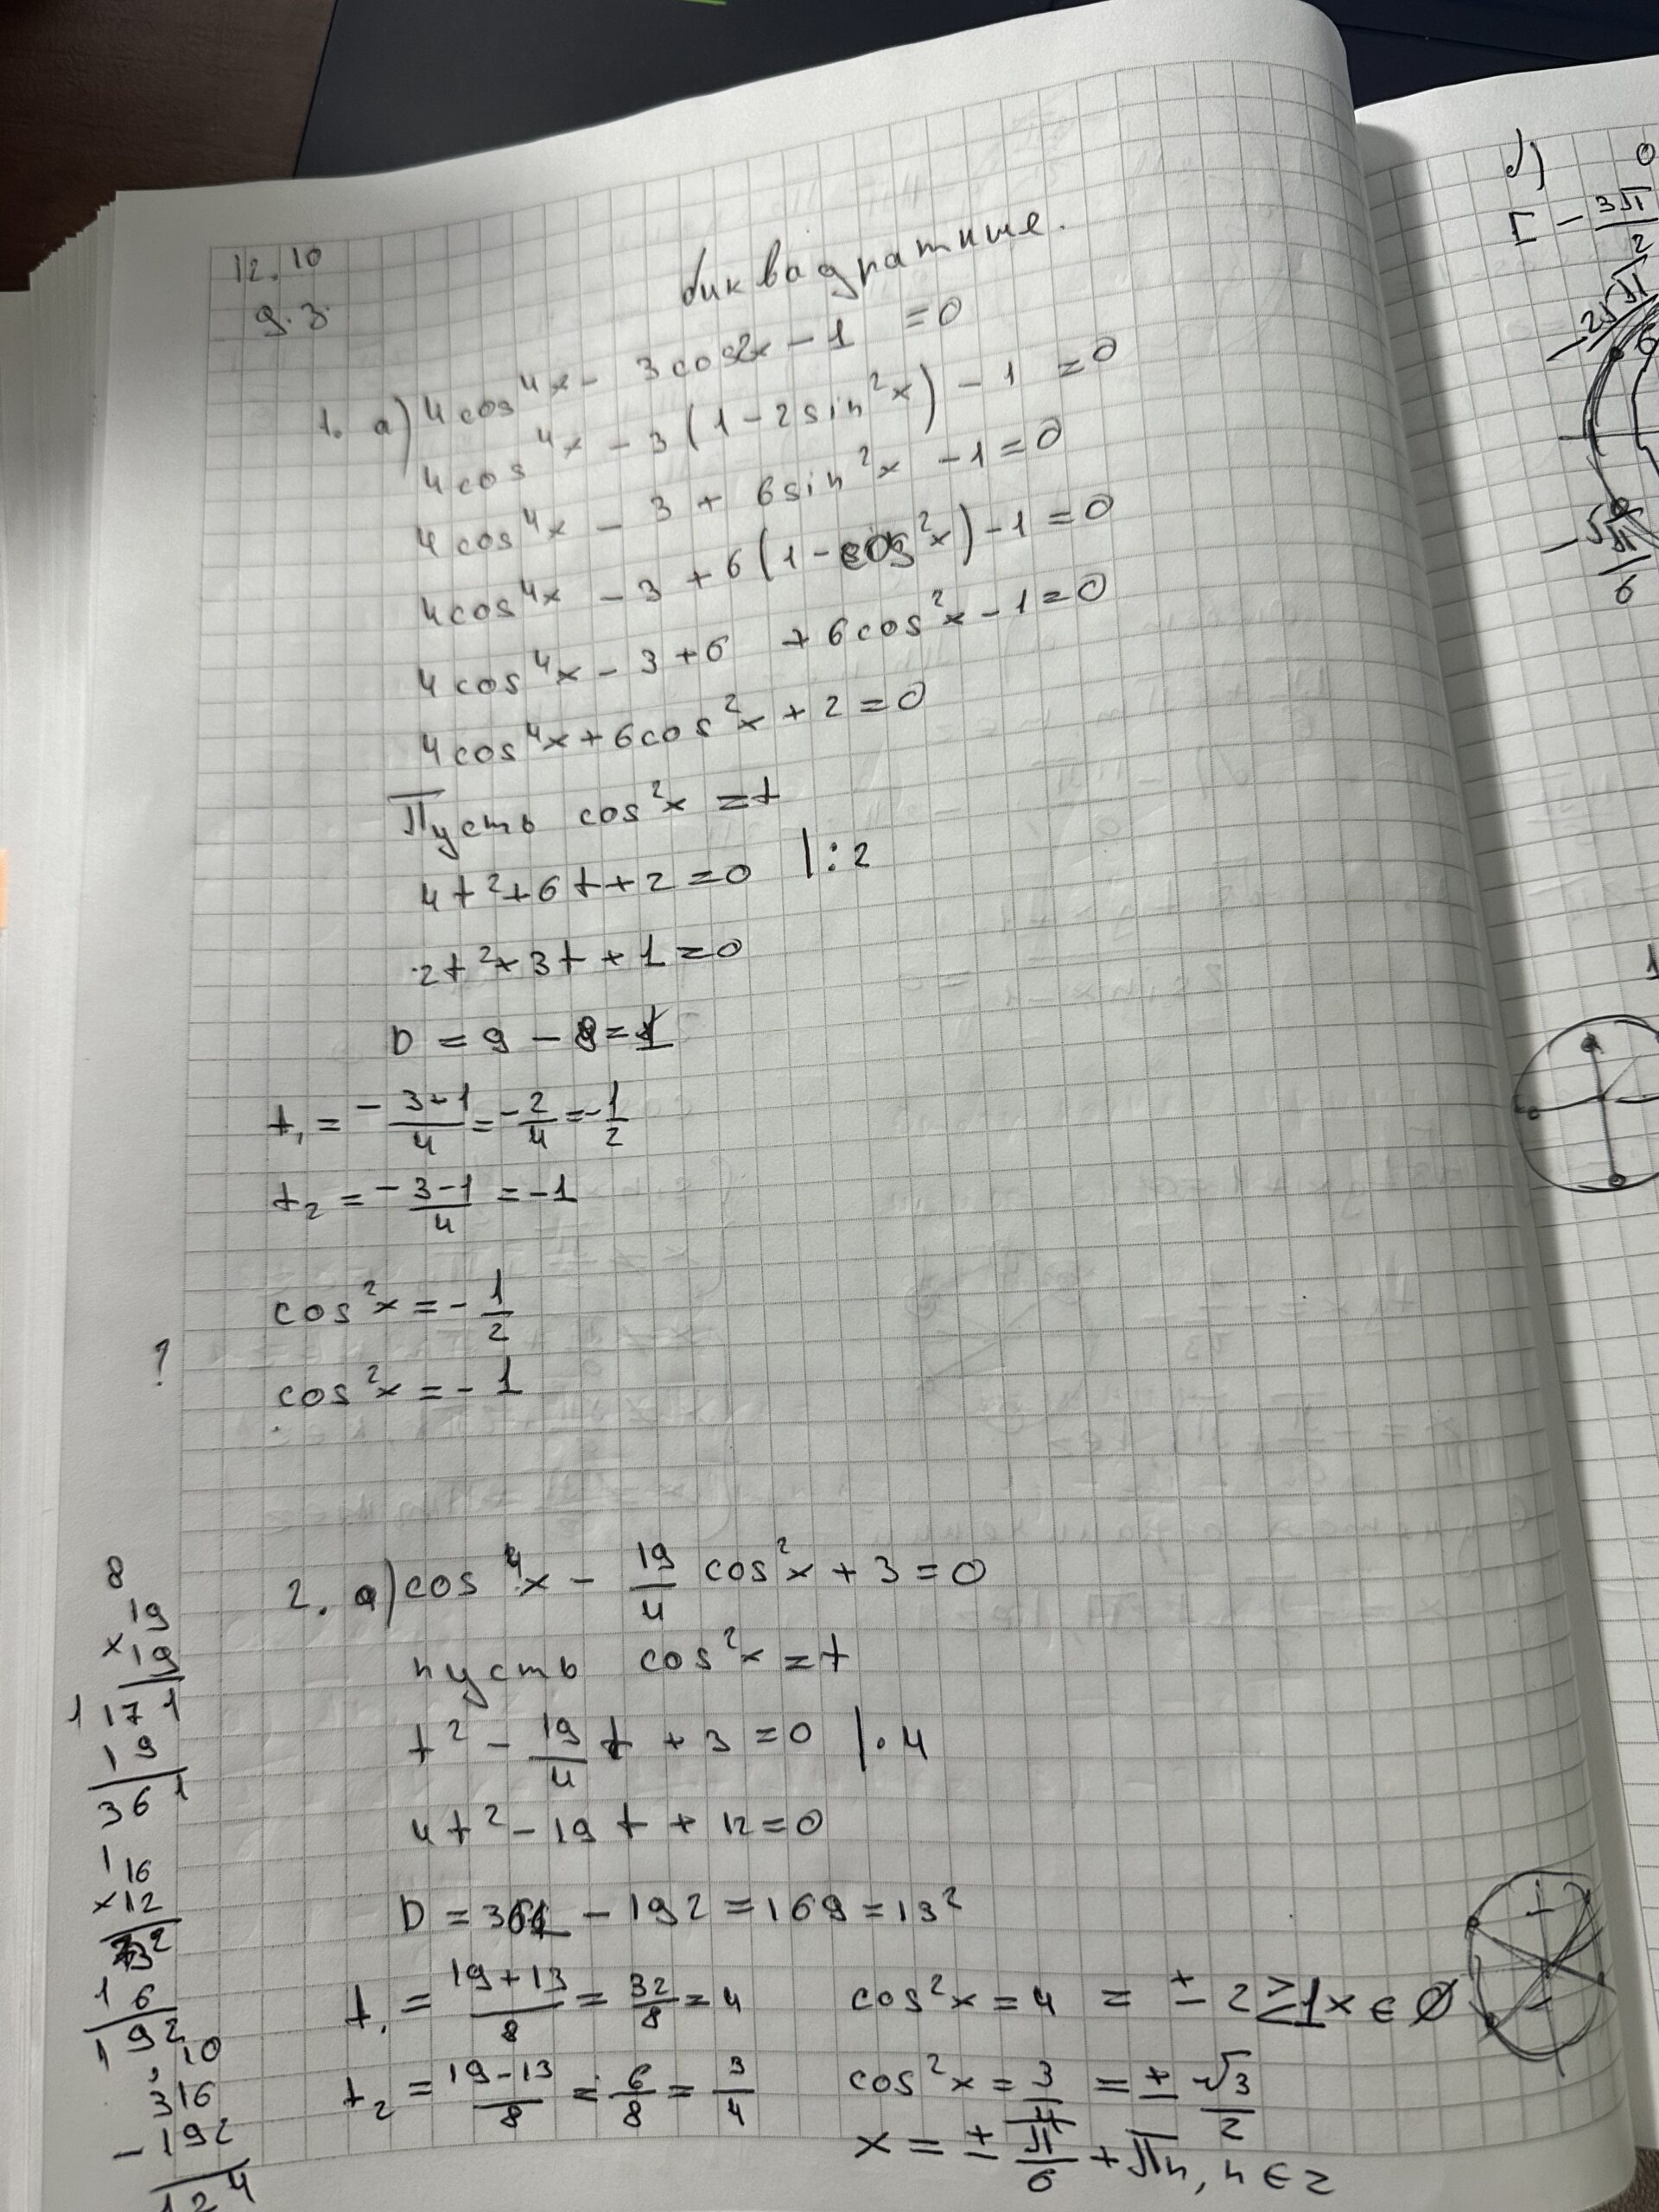 12.10
д.з.
биквадратные.
1. а) 4cos⁴x - 3cos2x - 1 = 0
4cos⁴x - 3(1 - 2sin²x) - 1 = 0
4cos⁴x - 3 + 6sin²x - 1 = 0
4cos⁴x - 3 + 6(1 - cos²x) - 1 = 0
4cos⁴x - 3 + 6 + 6cos²x - 1 = 0
4cos⁴x + 6cos²x + 2 = 0
Пусть cos²x = t
4t² + 6t + 2 = 0 |:2
2t² + 3t + 1 = 0
D = 9 - 8 = 1
t₁ = -3+1/4 = -2/4 = -1/2
t₂ = -3-1/4 = -1
cos²x = -1/2
?
cos²x = -1
2. а) cos⁴x - 19/4 cos²x + 3 = 0
пусть cos²x = t
t² - 19/4 t + 3 = 0 |·4
4t² - 19t + 12 = 0
D = 361 - 192 = 169 = 13²
t₁ = 19+13/8 = 32/8 = 4 cos²x = 4 = ±2 ≥ 1 x ∈ ∅
t₂ = 19-13/8 = 6/8 = 3/4 cos²x = 3/4 = ±√3/2
x = ±π/6 + πn, n ∈ z
8
19
×19
1 171
19
361
1 16
×12
32
16
192
10
316
-192
124
б) 0
[-3π/2
-2π
6
-5π/6
1